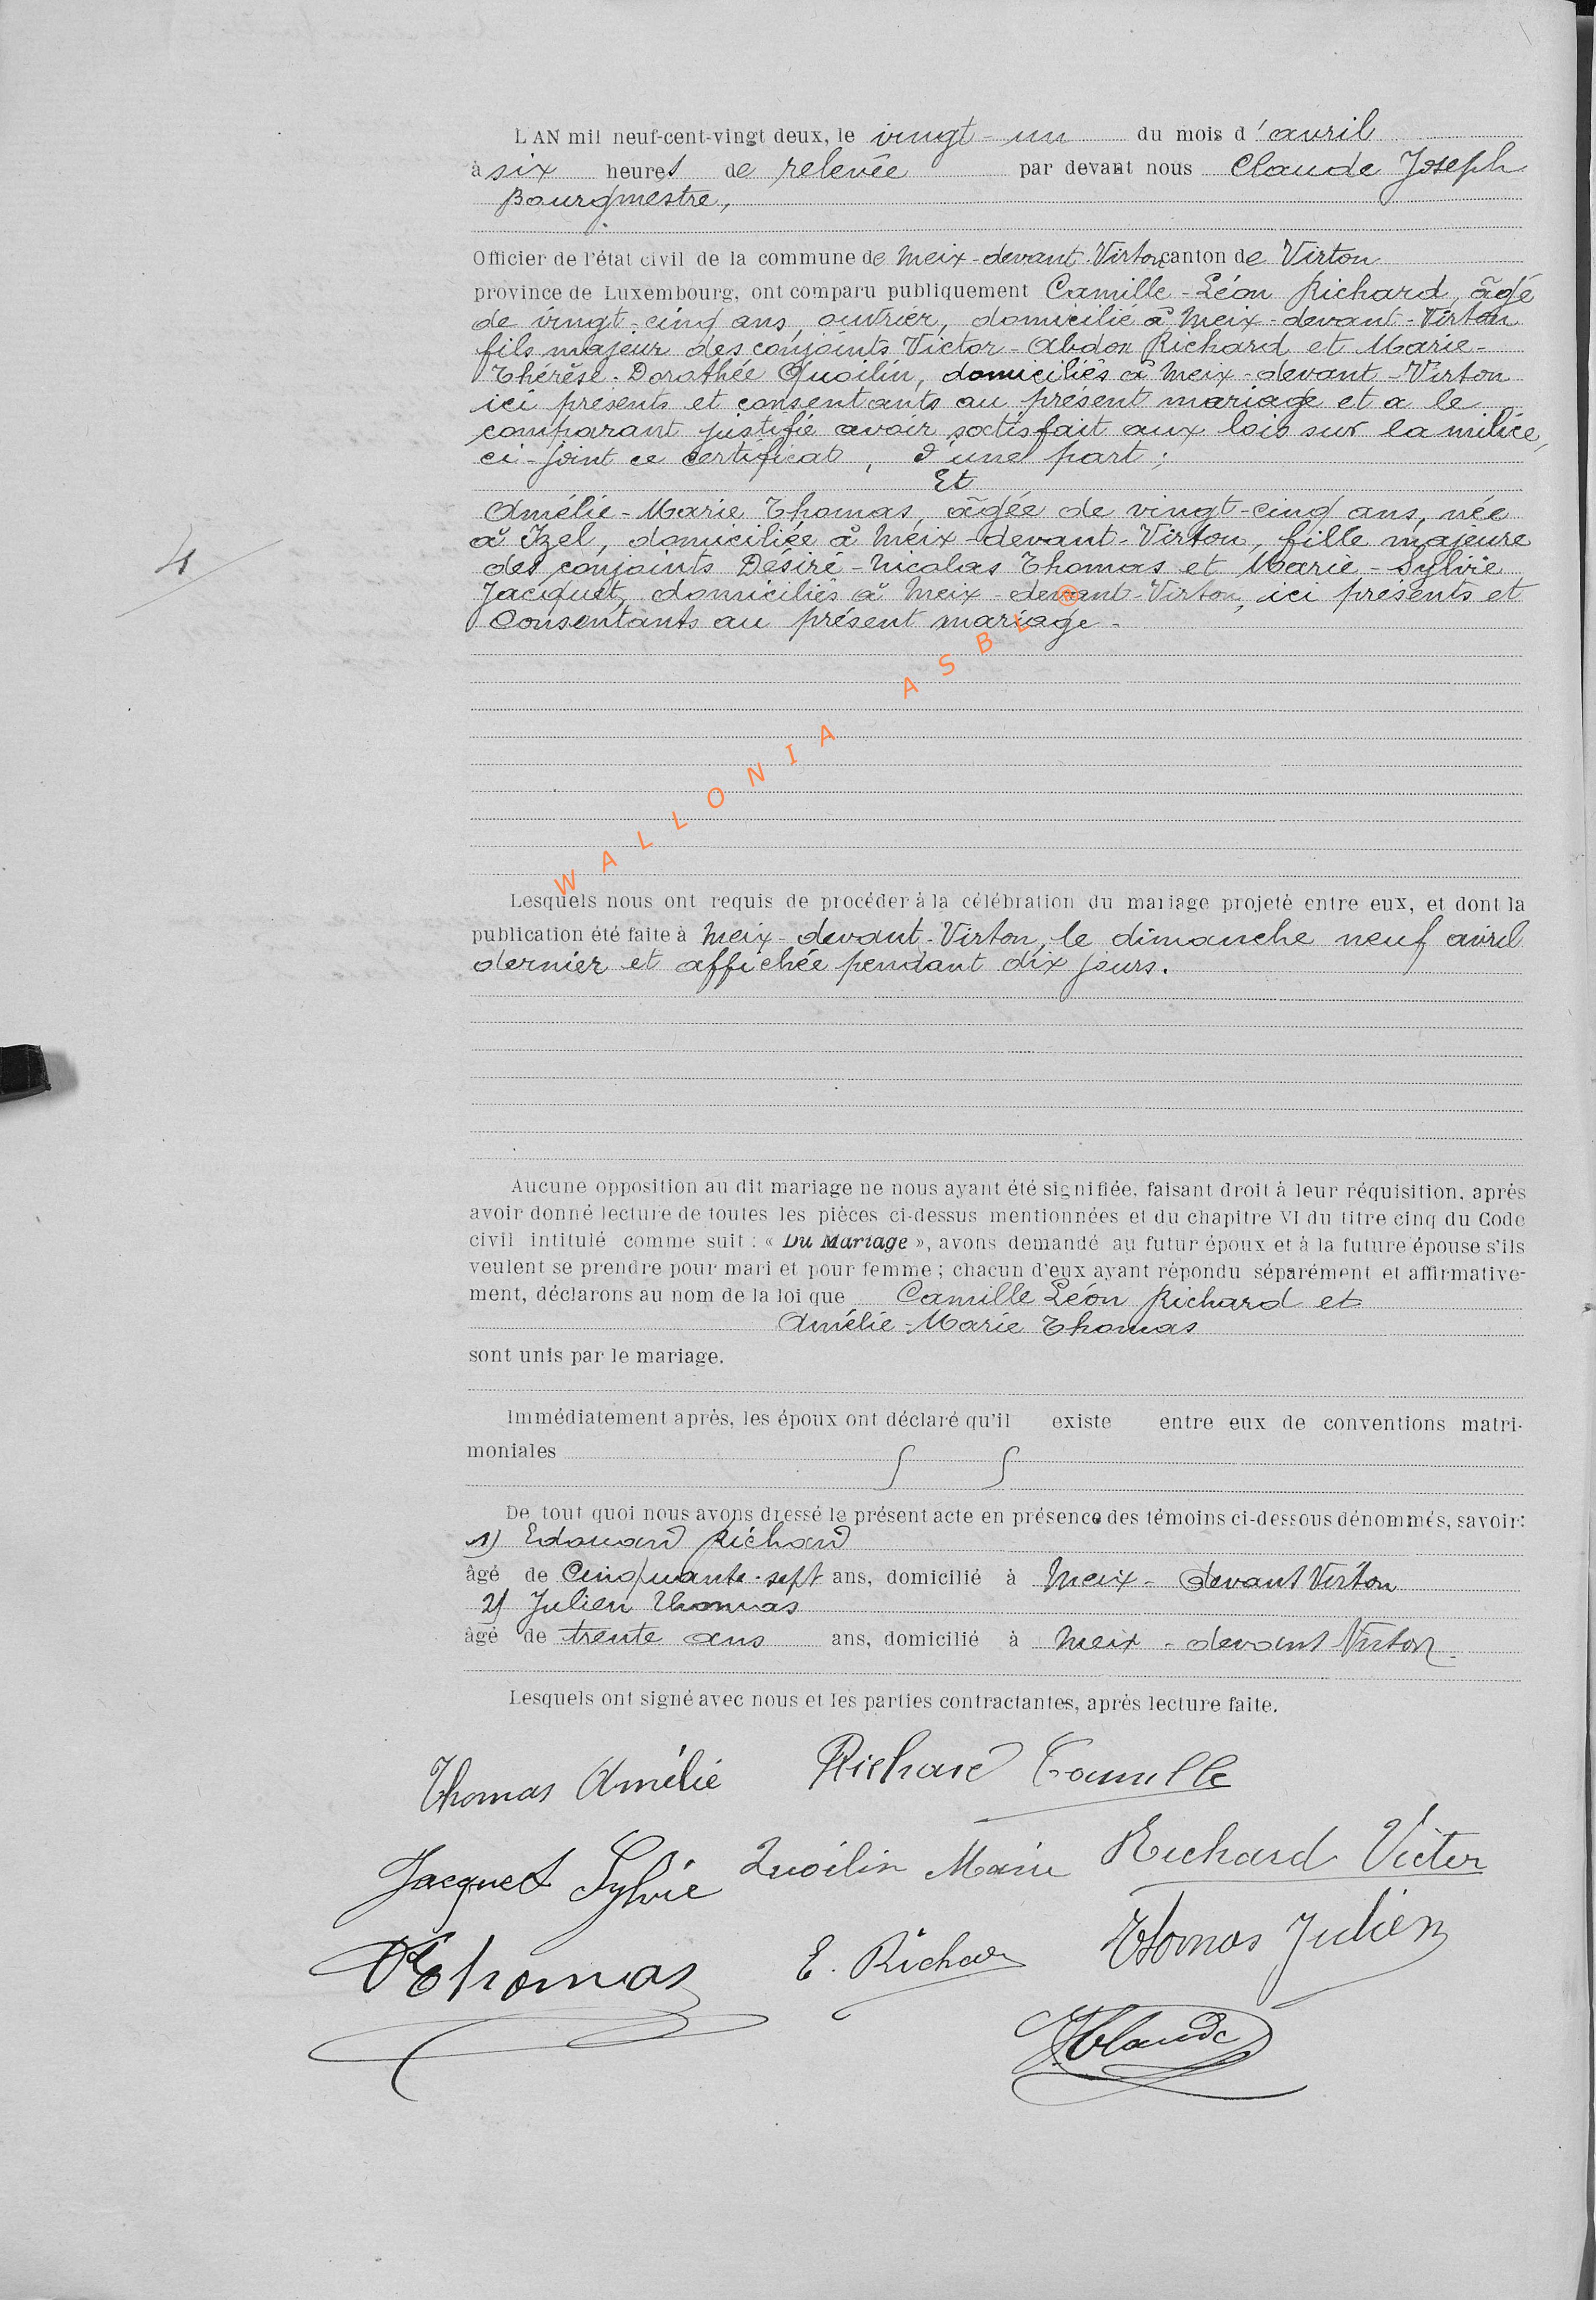 L'AN mil neuf-cent-vingt deux, le vingt-un du mois d'avril
à six heures de relevée par devant nous Claude Joseph
Bourgmestre,
Officier de l'état civil de la commune de Meix-devant-Virton canton de Virton
province de Luxembourg, ont comparu publiquement Camille-Léon Richard, âgé
de vingt-cinq ans, ouvrier, domicilié à Meix-devant-Virton
fils majeur des conjoints Victor-Abdon Richard et Marie-
Thérèse-Dorothée Quoilin, domiciliés à Meix-devant-Virton
ici présents et consentants au présent mariage et a le
comparant justifié avoir satisfait aux lois sur la milice,
ci-joint ce certificat, d'une part;
Et
Amélie-Marie Thomas, âgée de vingt-cinq ans, née
à Izel, domiciliée à Meix-devant-Virton, fille majeure
4
des conjoints Désiré-Nicolas Thomas et Marie-Sylvie
Jacquet, domiciliés à Meix-devant-Virton, ici présents et
Consentants au présent mariage.
WALLONIA ASBL ®
Lesquels nous ont requis de procéder à la célébration du mariage projeté entre eux, et dont la
publication été faite à Meix-devant-Virton, le dimanche neuf avril
dernier et affichée pendant dix jours.
Aucune opposition au dit mariage ne nous ayant été signifiée, faisant droit à leur réquisition, après
avoir donné lecture de toutes les pièces ci-dessus mentionnées et du chapitre VI du titre cinq du Code
civil intitulé comme suit : « Du Mariage », avons demandé au futur époux et à la future épouse s'ils
veulent se prendre pour mari et pour femme ; chacun d'eux ayant répondu séparément et affirmative-
ment, déclarons au nom de la loi que Camille Léon Richard et
Amélie-Marie Thomas
sont unis par le mariage.
Immédiatement après, les époux ont déclaré qu'il existe entre eux de conventions matri-
moniales
De tout quoi nous avons dressé le présent acte en présence des témoins ci-dessous dénommés, savoir:
1) Edouard Richard
âgé de Cinquante-sept ans, domicilié à Meix-devant Virton
2) Julien Thomas
âgé de trente ans ans, domicilié à Meix-devant Virton.
Lesquels ont signé avec nous et les parties contractantes, après lecture faite.
Thomas Amélie Richard Camille
Jacquet Sylvie Quoilin Marie Richard Victor
Thomas E. Richard Thomas Julien
J Claude